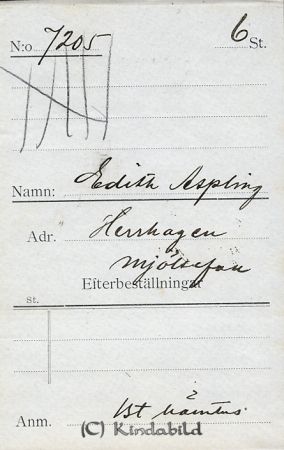 N:o 7205 6 St.
Namn: Edith Aspling
Adr. Herrhagen
Mjölsefan
Efterbeställningar
st.
Anm. 1 st hämtas
(C) Kindabild